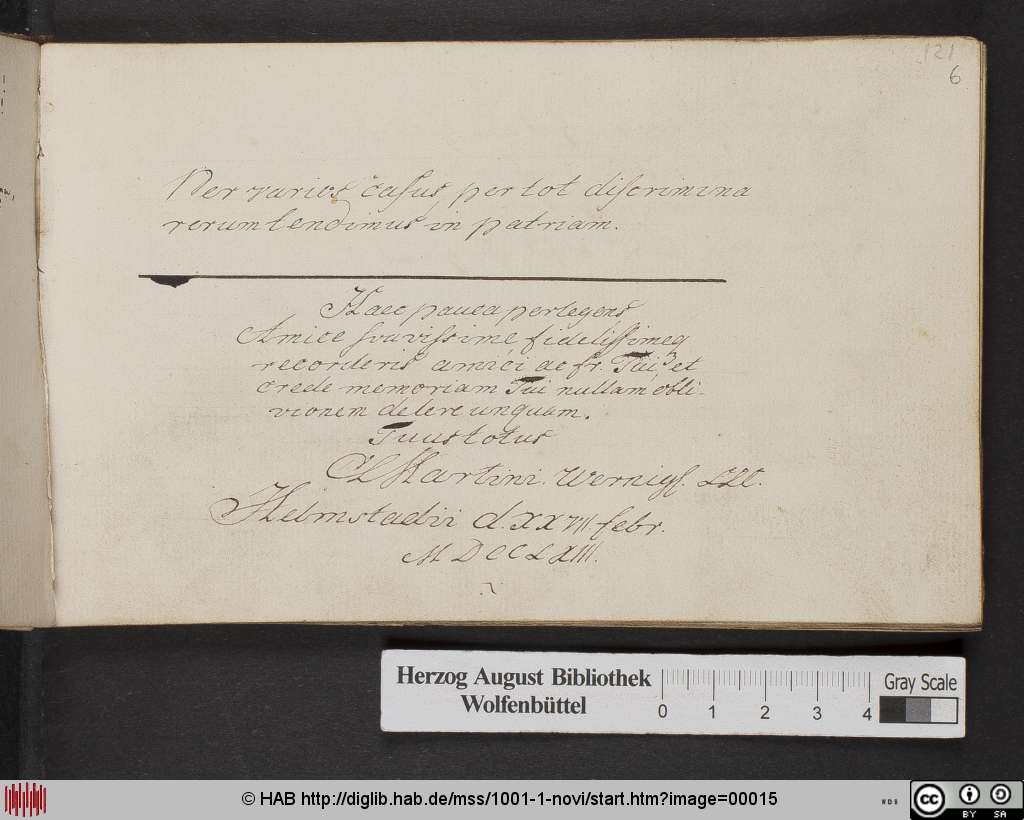 121
6
Per varios casus per tot discrimina
rerum tendimus in patriam.
Haec pauca perlegens
Amice svavissime fidelissimeq
recorderis amici ac fr. Tui et
crede memoriam Tui nullam obli-
vionem delere unquam.
Tuus totus
Martini. Wernigs.
Helmstadii d. XXVII febr.
MDCCLXIII.
Herzog August Bibliothek
Wolfenbüttel
0 1 2 3 4
Gray Scale
© HAB http://diglib.hab.de/mss/1001-1-novi/start.htm?image=00015
cc BY SA